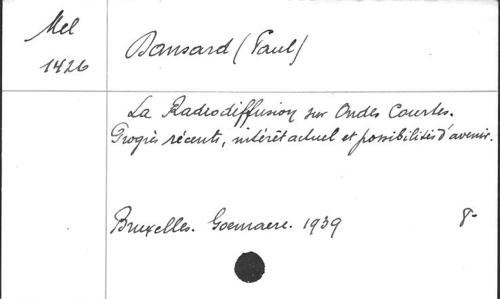 Mel
1426
Bansard (Paul)
La Radiodiffusion sur Ondes Courtes.
Progrès récents, intérêt actuel et possibilités d'avenir.
Bruxelles. Goemaere. 1939
8-